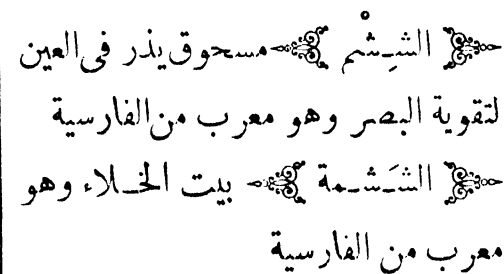 الشِشْم مسحوق يذر فى العين
لتقوية البصر وهو معرب من الفارسية
الشَشمة بيت الخلاء وهو
معرب من الفارسية